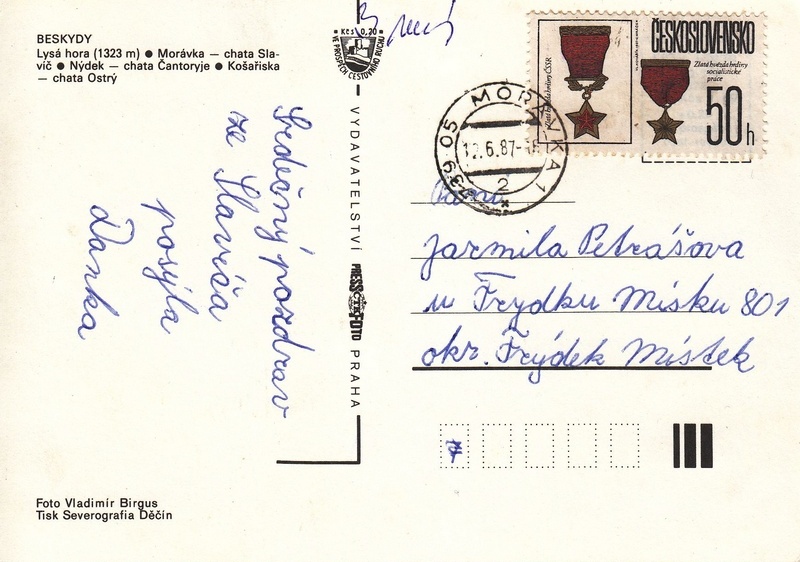 BESKYDY
Lysá hora (1323 m) ● Morávka — chata Sla-
víč ● Nýdek — chata Čantoryje ● Košařiska
— chata Ostrý
Srdečný pozdrav
ze Slavíča
posýla
Danka
Foto Vladimír Birgus
Tisk Severografia Děčín
Kčs 0,20
VE PROSPĚCH CESTOVNÍHO RUCHU
VYDAVATELSTVÍ PRESSFOTO PRAHA
ČESKOSLOVENSKO
Zlatá hvězda hrdiny ČSSR
Zlatá hvězda hrdiny
socialistické
práce
50h
739 05 MORÁVKA 1
12.6.87
2
Jarmila Petrášova
u Frydku Místku 801
okr. Frýdek Místek